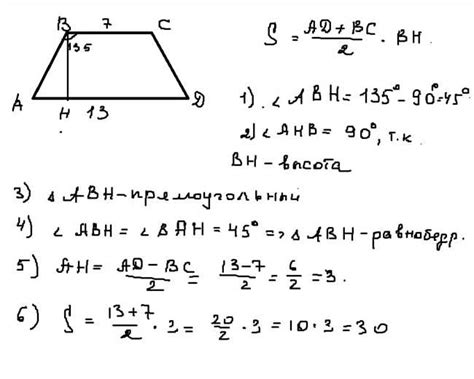 B 7 C
135
A H 13 D
S = AD + BC / 2 · BH
1). ∠ ABH = 135° - 90° = 45°
2) ∠ AHB = 90°, т.к.
BH - высота
3) △ ABH - прямоугольный
4) ∠ ABH = ∠ BAH = 45° => △ ABH - равнобедр.
5) AH = AD - BC / 2 = 13 - 7 / 2 = 6 / 2 = 3.
6) S = 13 + 7 / 2 · 3 = 20 / 2 · 3 = 10 · 3 = 30